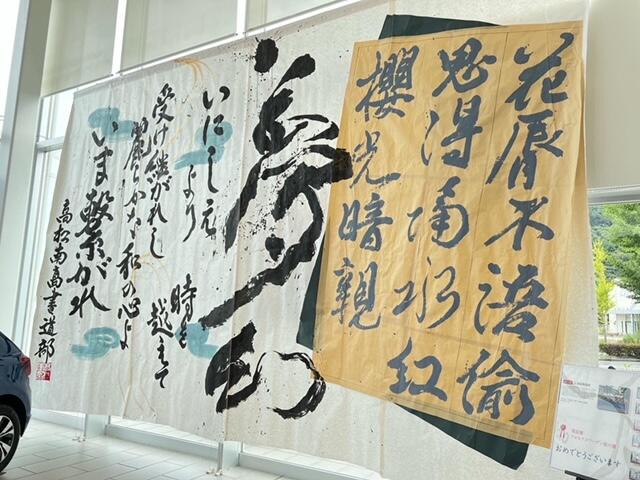 花脣不語偸
思得隔水紅
櫻光暗親
夢幻
いにしえより
時を越えて
受け継がれし
麗らかな和の心よ
いま繋がれ
高松南高書道部
おめでとうございます